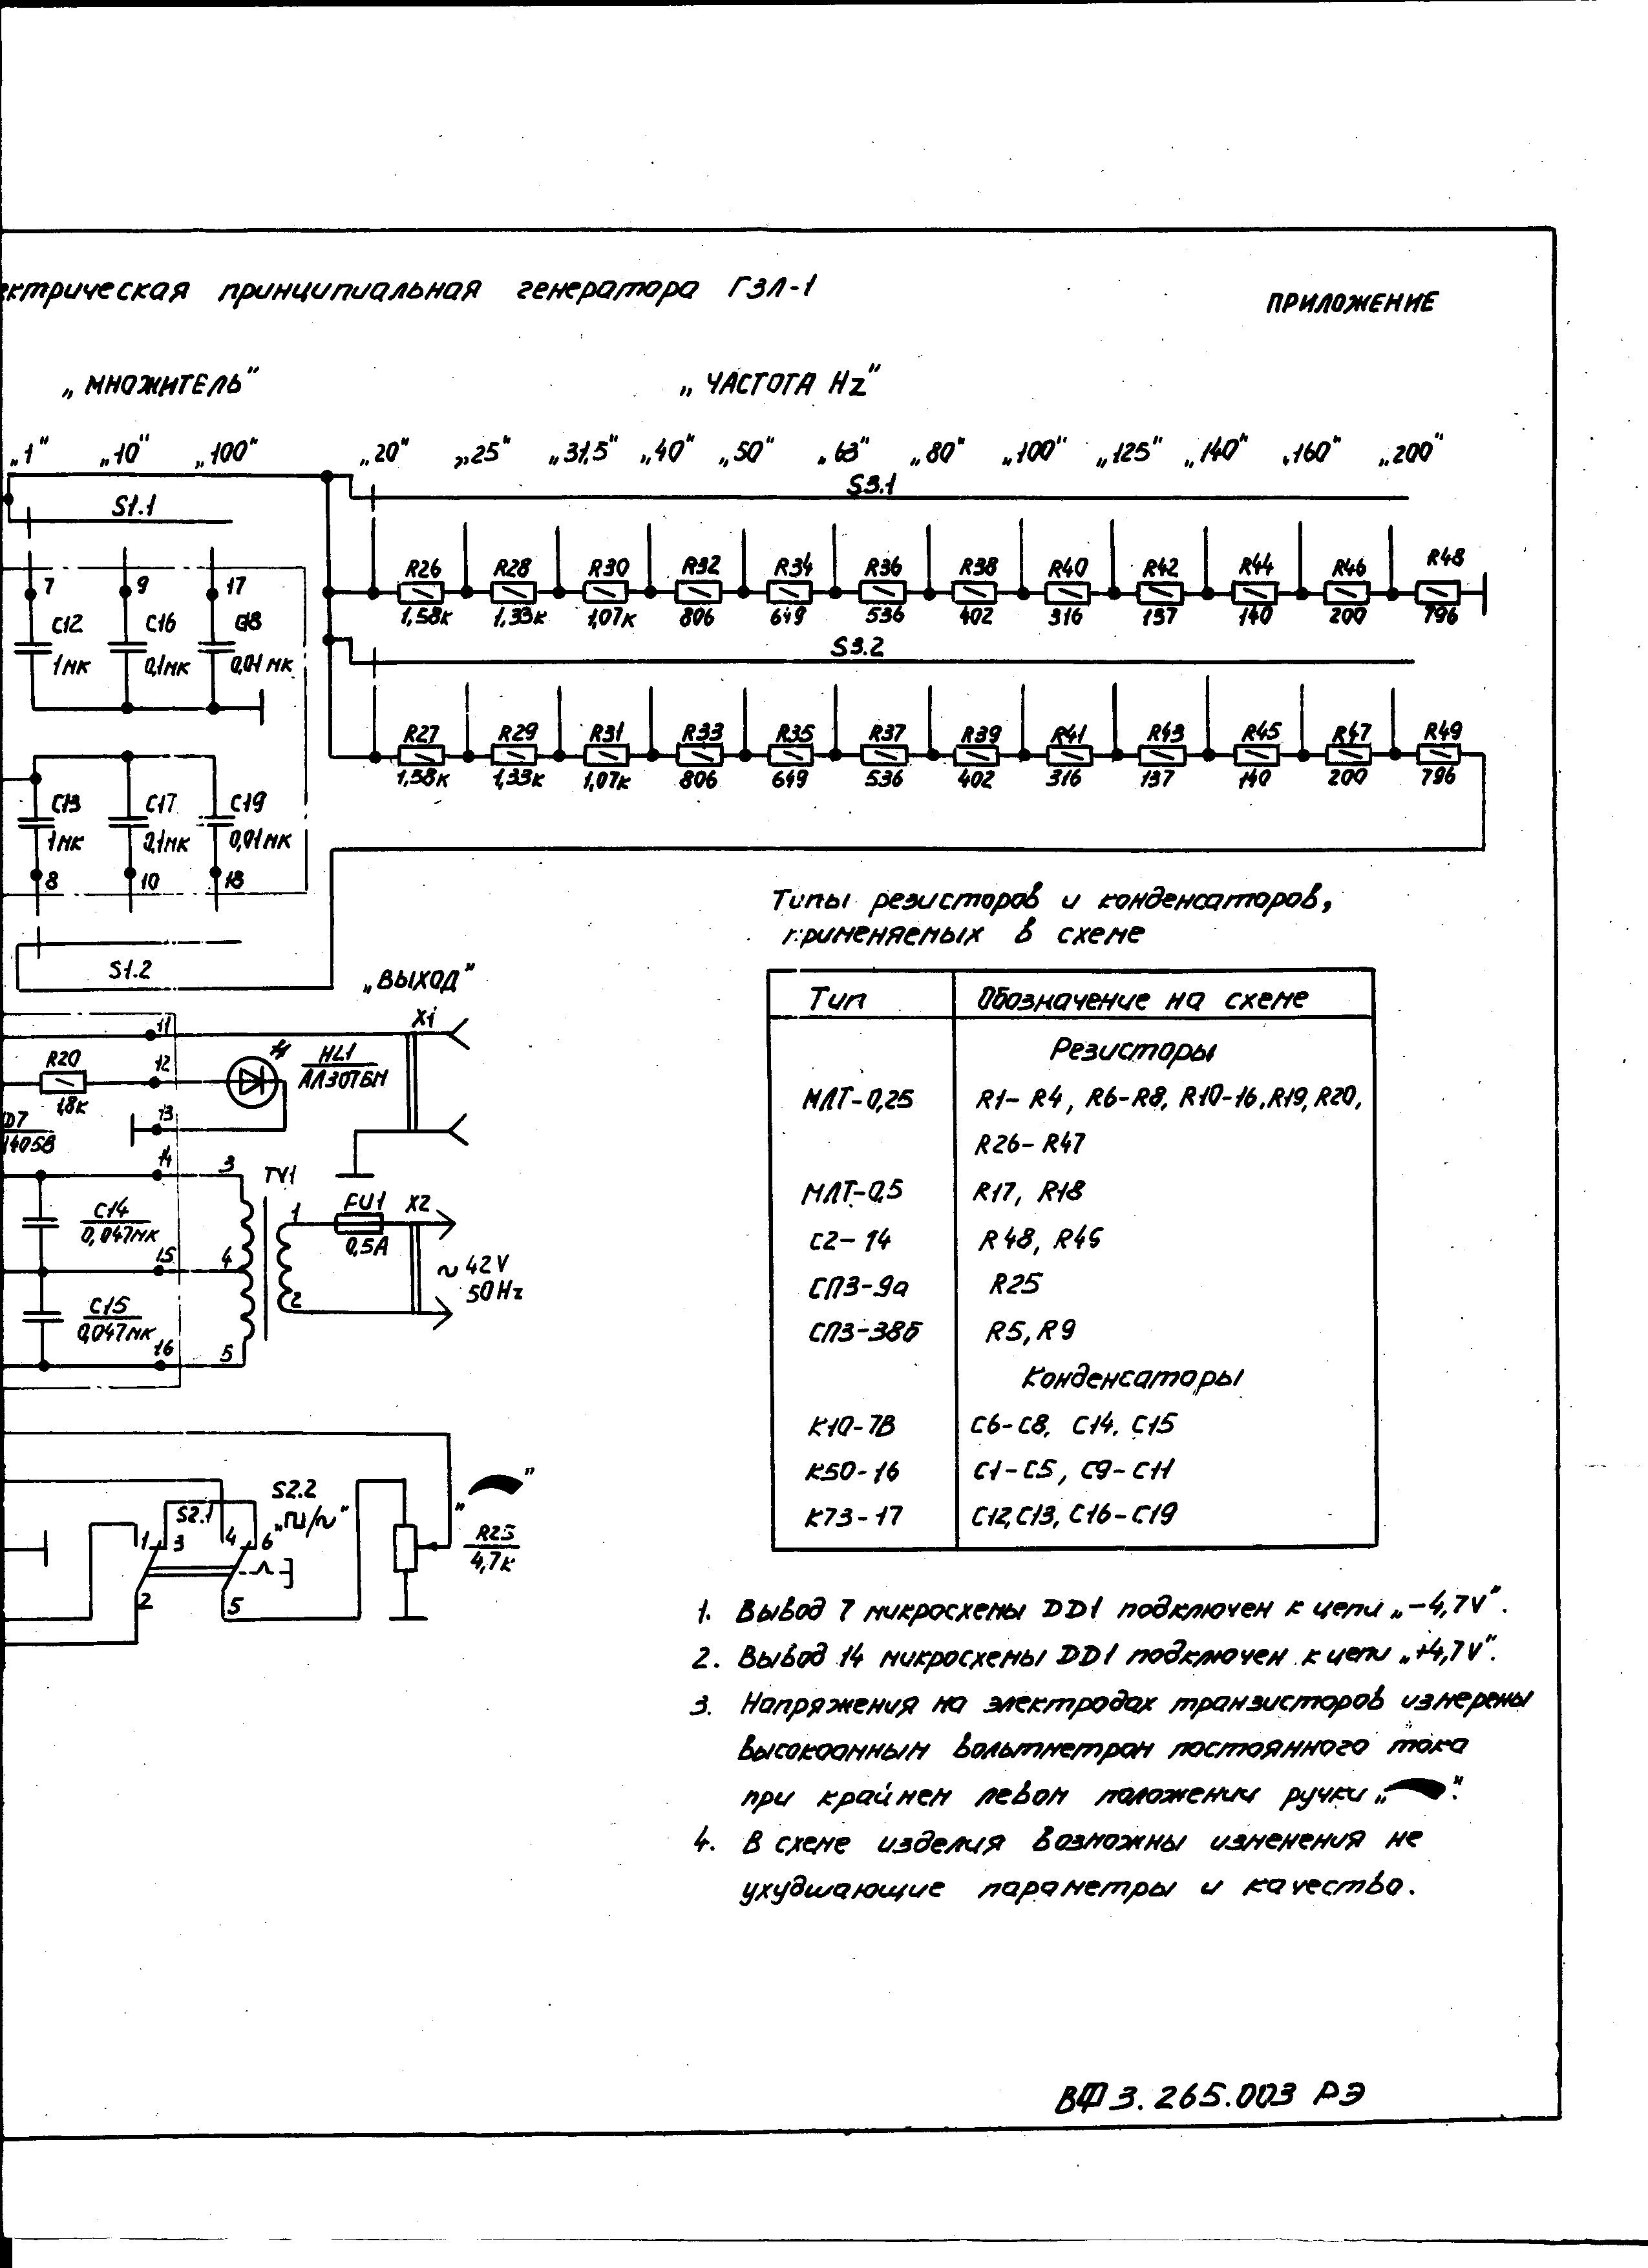 ектрическая принципиальная генератора ГЗЛ-1
ПРИЛОЖЕНИЕ
„МНОЖИТЕЛЬ"
„ЧАСТОТА Hz"
„1" „10" „100" „20" „25" „31,5" „40" „50" „63" „80" „100" „125" „140" „160" „200"
S3.1
S1.1
R26 R28 R30 R32 R34 R36 R38 R40 R42 R44 R46 R48
7 9 17
1,58к 1,33к 1,07к 806 649 536 402 316 137 140 200 796
C12 C16 C18
1мк 0,1мк 0,01мк
S3.2
R27 R29 R31 R33 R35 R37 R39 R41 R43 R45 R47 R49
1,58к 1,33к 1,07к 806 649 536 402 316 137 140 200 796
C13 C17 C19
1мк 0,1мк 0,01мк
8 10 18
S1.2
„ВЫХОД"
X1
11
R20 12 HL1
1,8к АЛ307БМ
13
D7
14058
14 3 TV1
C14 1 FU1 X2
0,047мк 0,5А
15 4 ~42V
50Hz
C15 2
0,047мк
16 5
S2.2
S2.1 „⊓/~"
1 3 4 6 R25
4,7к
2 5
Типы резисторов и конденсаторов,
применяемых в схеме
Тип Обозначение на схеме
Резисторы
МЛТ-0,25 R1-R4, R6-R8, R10-16, R19, R20,
R26-R47
МЛТ-0,5 R17, R18
С2-14 R48, R49
СП3-9а R25
СП3-38б R5, R9
Конденсаторы
К10-7В C6-C8, C14, C15
К50-16 C1-C5, C9-C11
К73-17 C12, C13, C16-C19
1. Вывод 7 микросхемы DD1 подключен к цепи „-4,7V".
2. Вывод 14 микросхемы DD1 подключен к цепи „+4,7V".
3. Напряжения на электродах транзисторов измерены
высокоомным вольтметром постоянного тока
при крайнем левом положении ручки „ ".
4. В схеме изделия возможны изменения не
ухудшающие параметры и качество.
ВФ3.265.003 РЭ